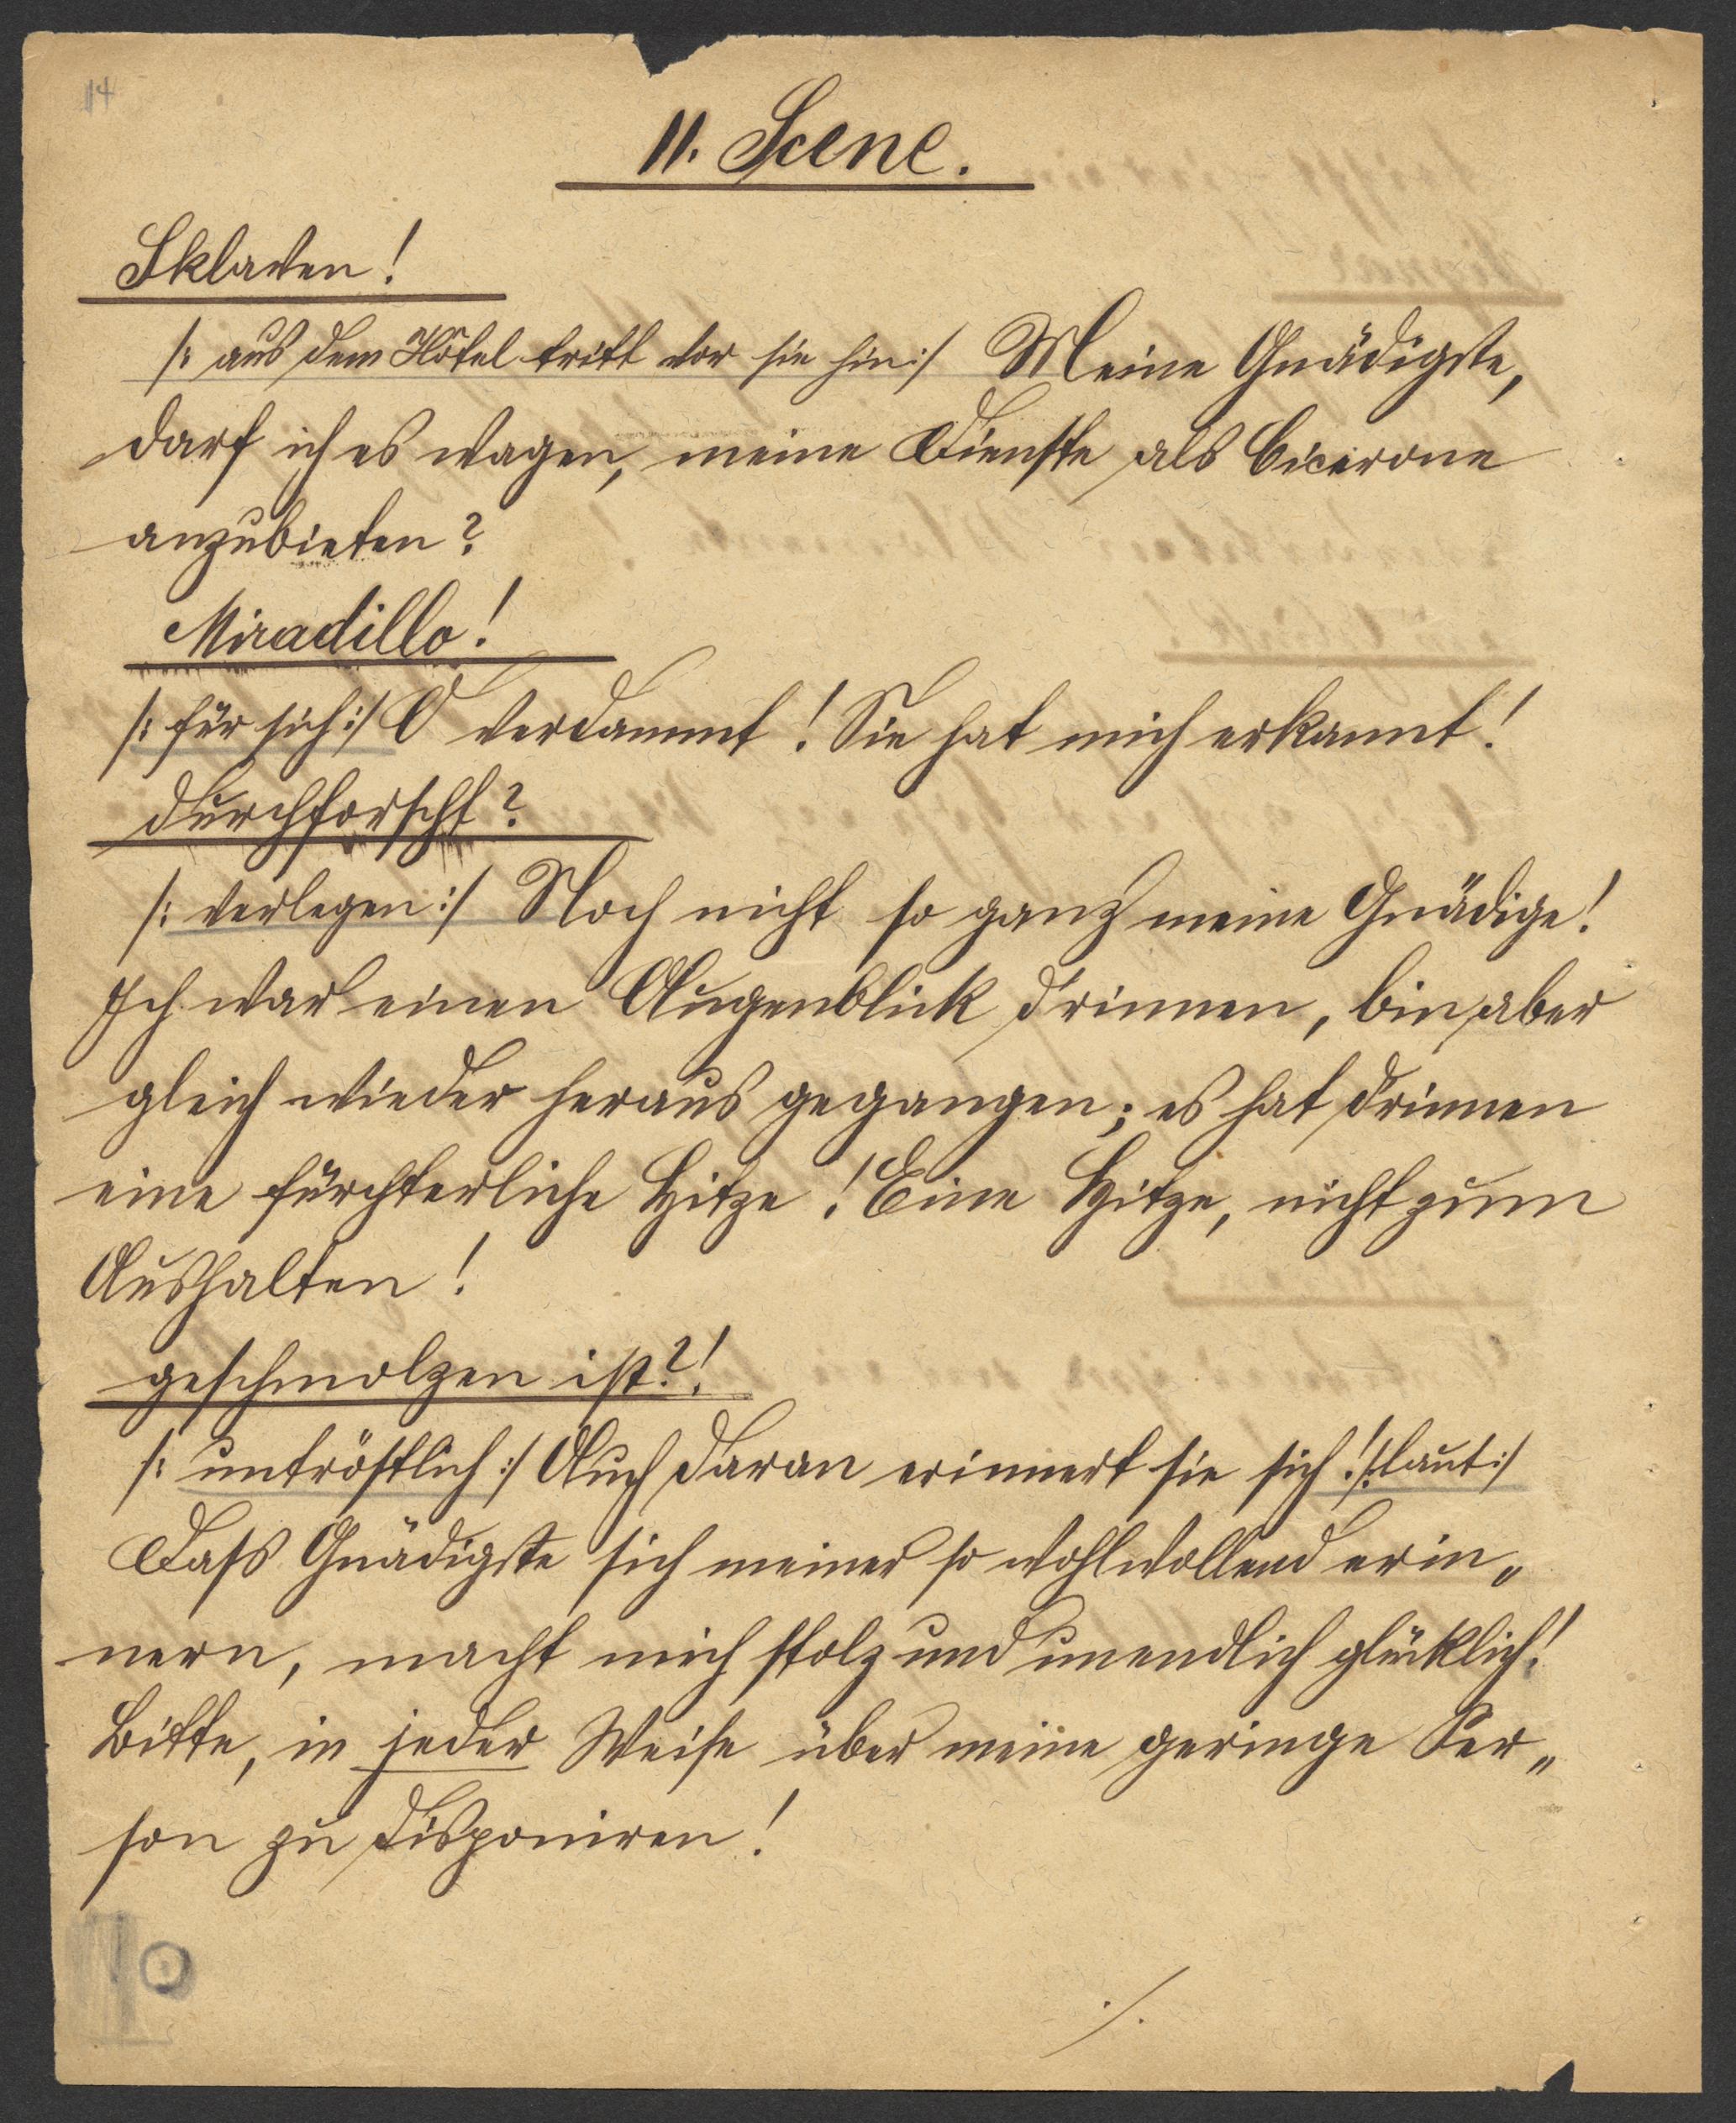 14
11. Scene.
Sklaven!
/: aus dem Hôtel tritt vor sie hin :/ Meine Gnädigste,
darf ich es wagen, meine Dienste als Cicerone
anzubieten?
Miradillo!
/: für sich :/ O verdammt! Sie hat mich erkannt!
durchforscht?
/: verlegen :/ Noch nicht so ganz meine Gnädige!
Ich war einen Augenblick d'rinnen, bin aber
gleich wieder heraus gegangen; es hat drinnen
eine fürchterliche Hitze! Eine Hitze, nicht zum
Aushalten!
geschmolzen ist?!
/: untröstlich :/ Auch daran erinnert sie sich! /: laut :/
Dass Gnädigste sich meiner so wohlwollend erin„
nern, macht mich stolz und unendlich glücklich!
Bitte, in jeder Weise über meine geringe Per„
son zu disponiren!
./.